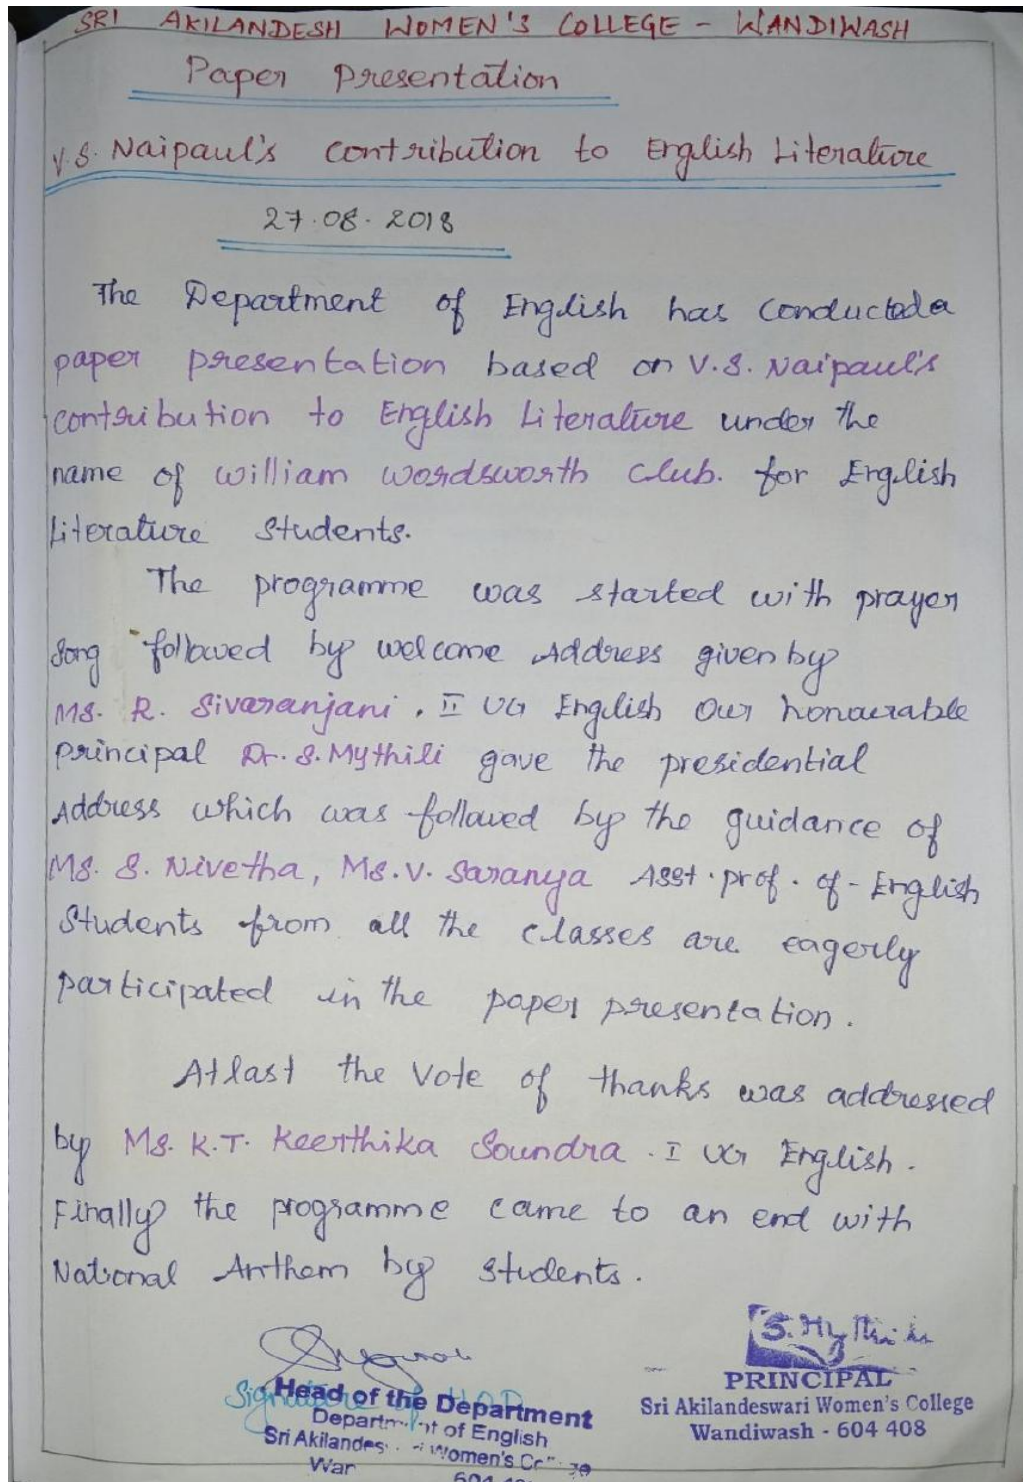 SRI AKILANDESH WOMEN'S COLLEGE - WANDIWASH
Paper Presentation
V.S. Naipaul's contribution to English Literature
27.08.2018
The Department of English has conducted a
paper presentation based on V.S. Naipaul's
contribution to English Literature under the
name of William Wordsworth Club. for English
Literature Students.
The programme was started with prayer
Song followed by welcome Address given by
Ms. R. Sivaranjani, II UG English Our honourable
Principal Dr. S. Mythili gave the presidential
Address which was followed by the guidance of
Ms. S. Nivetha, Ms. V. Saranya Asst. prof. of - English
Students from all the classes are eagerly
participated in the paper presentation.
At last the Vote of thanks was addressed
by Ms. K.T. Keerthika Soundra. I UG English.
Finally the programme came to an end with
National Anthem by students.
S. Mythili
PRINCIPAL
Sri Akilandeswari Women's College
Wandiwash - 604 408
Signature of HOD
Head of the Department
Department of English
Sri Akilandes Women's
War